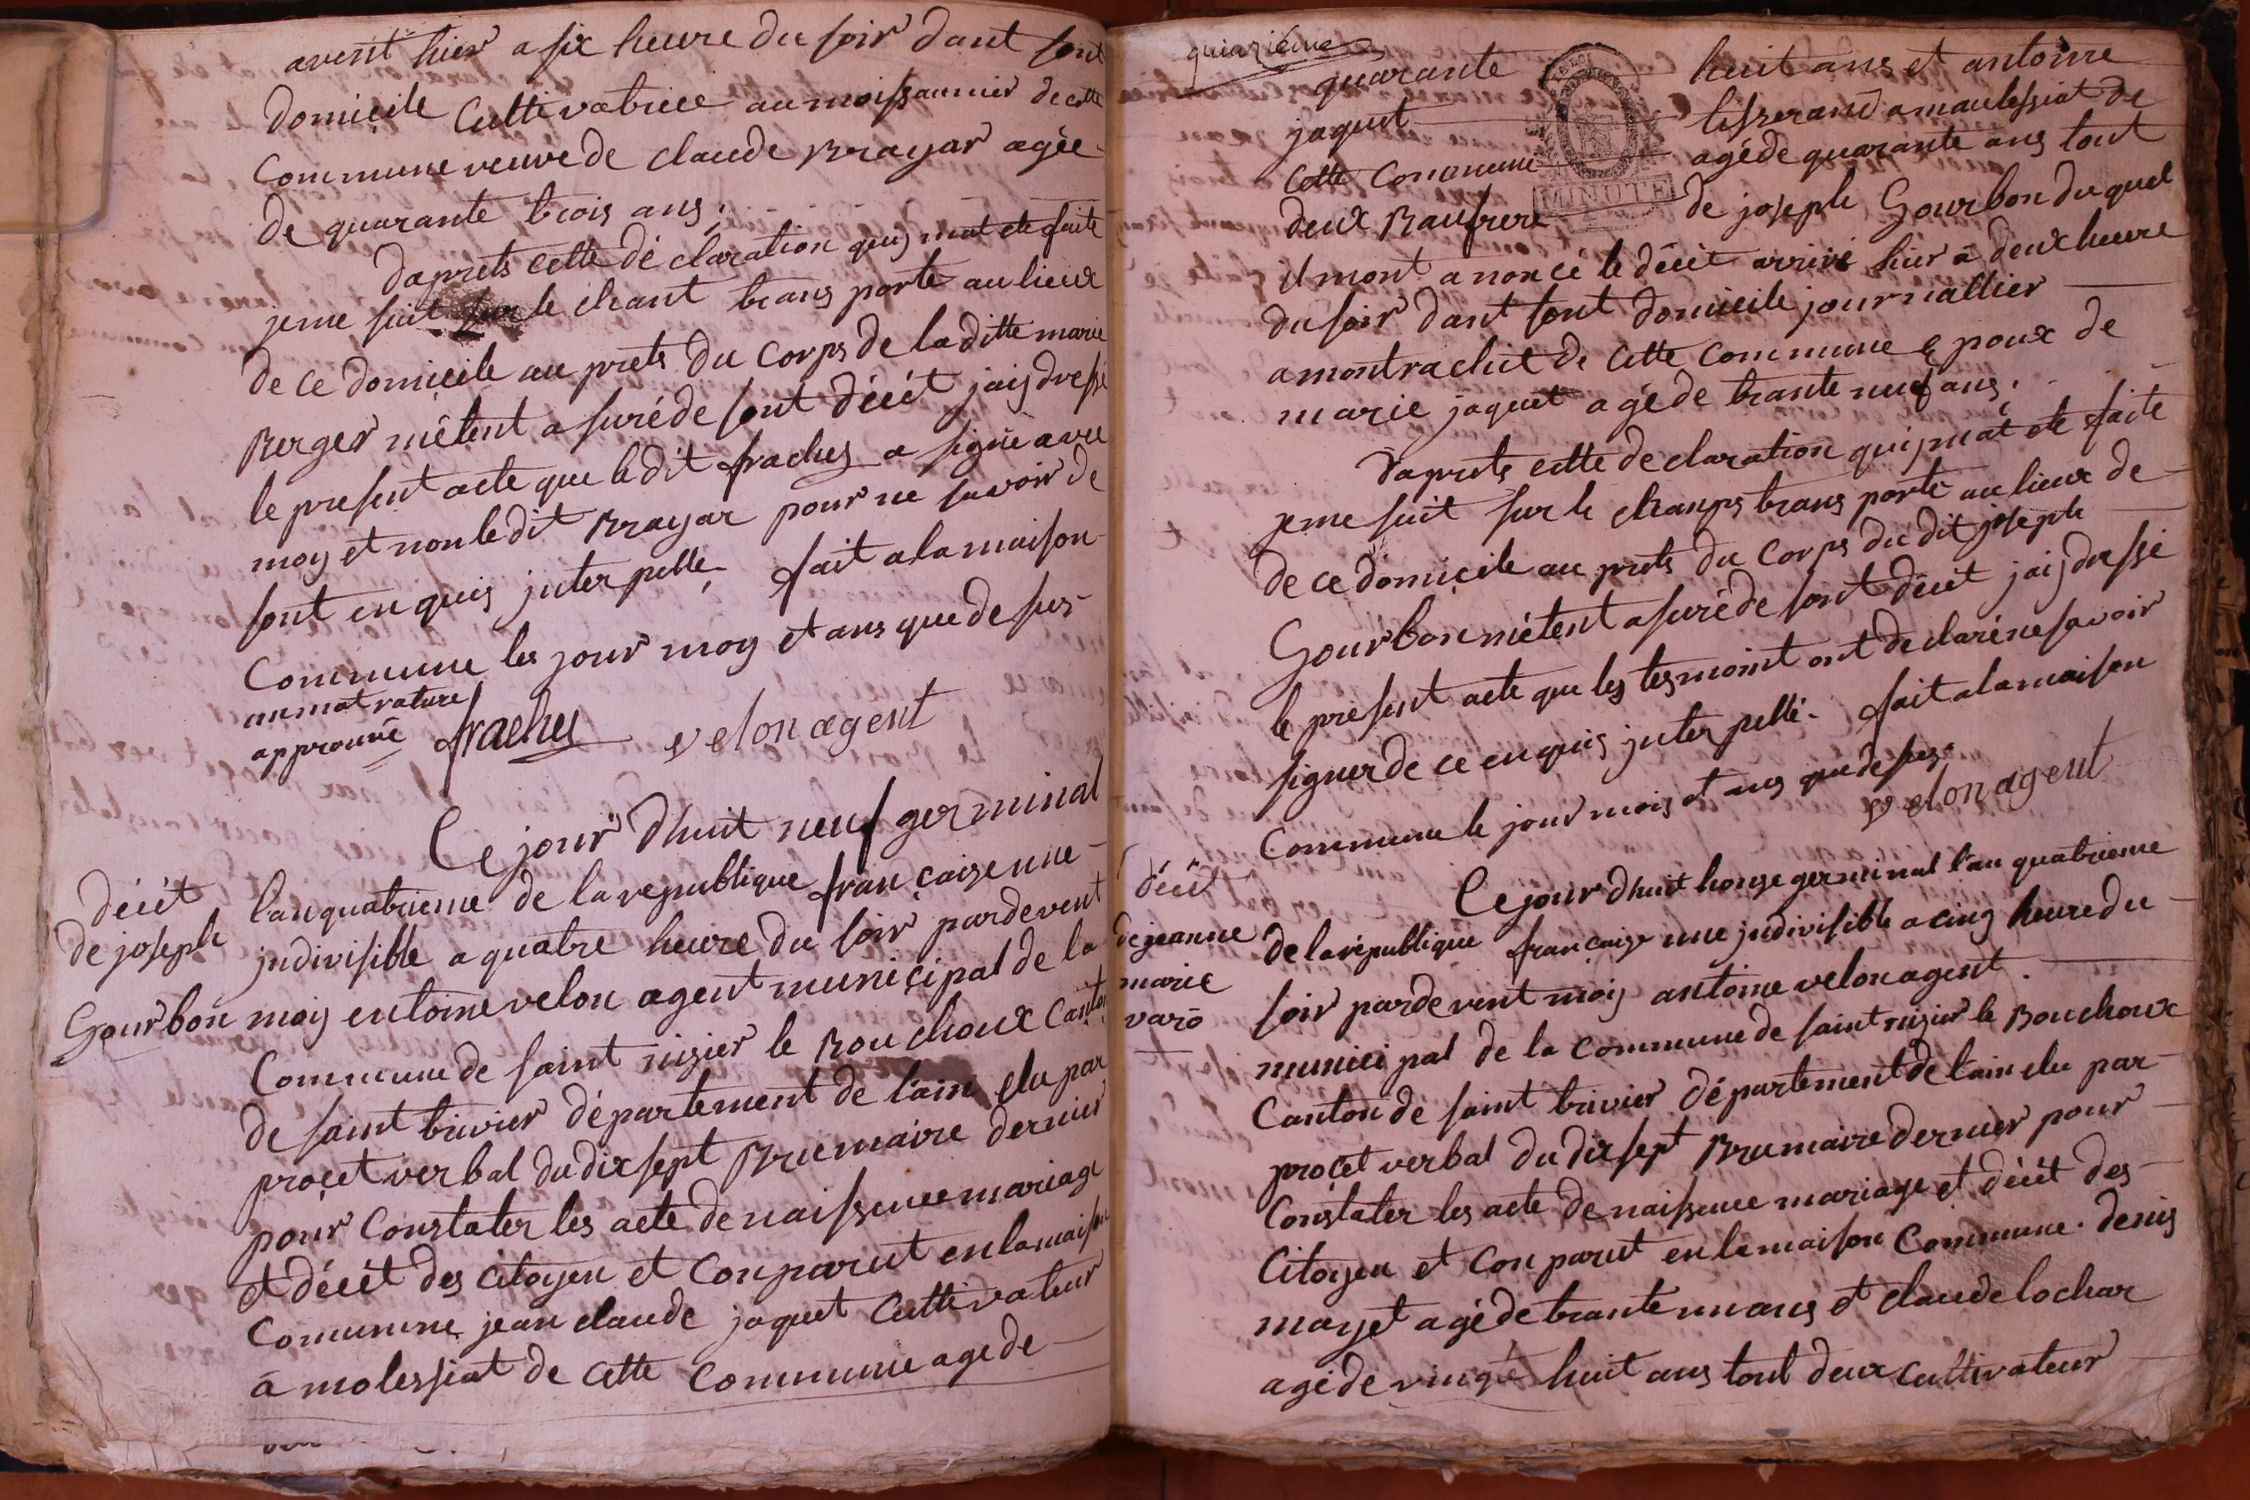 avent hier a six heure du soir dant sont
domicile Cultivatrice au moissaunier de cette
Commune veuve de claude Brayar agée
de quarante trois ans;
daprets cette dé claration quij mat ete faite
jeme suit sur le chant trans porte au lieux
de ce domicile au prets du Corps de laditte marie
Berger nétent a suré de sont décét jaij dressé
le present acte que ledit frachey a signé avec
moy et non ledit Brayar pour ne savoir de
sont enquis juter pelle fait a la maison
Commune les jour moy et ans que de sus
un mot rature
approuvé frachey velon agent
Ce jour dhuit neuf germinal
décét
de joseph
Gourbon
lan quatrieme de la republique française une
judivisible a quatre heure du soir pardevent
moy entoine velon agent municipal de la
Commune de saint nizier le Bouchoux Canton
de saint trivier département de l'ain elu par
procet verbal du dix sept Brumaire dernier
pour Constater les acte de naissence mariage
et décét des Citoyen et Conparut en la maison
Commune jean claude jaquet Cultivateur
a molessiat de cette Commune age de
quinzième
quarante huit ans et antoine
jaquet tisserand a maulessiat de
Cette Commune agé de quarante ans tout
deux Beaufrere de joseph Gourbon du quel
MINUTE
il mont a noncé le décét arrivé hier a deux heure
du soir dant sont domicile journallier
a montrachit de Cette Commune e poux de
marie jaquet agé de trante neuf ans;
daprets cette de claration quij mat ete faite
jeme suit sur le champs trans porté au lieux de
de ce domicile au prets du Corps du dit joseph
Gourbon nétent asuré de sont décét jaij dressé
le present acte que les tesmoint ont de claré ne savoir
signer de ce enquis juter pellé. fait a la maison
Commune le jour mois et ans que de sus.
velon agent
décét
de jeanne
marie
varo
Ce jour dhuit honze germinal l'an quatrieme
de la république française une judivisible a cinq heure du
soir pardevent moy antoine velon agent
munici pal de la Commune de saint nizier le Bouchoux
Canton de saint trivier département de l'ain elu par
procet verbal du dix sept Brumaire dernier pour
Constater les acte de naissence mariage et décét des
Citoyen et Conparut en la maison Commune. denis
mayet agé de trante un ans et claude lochar
agé de vingt huit ans tout deux Cultivateur